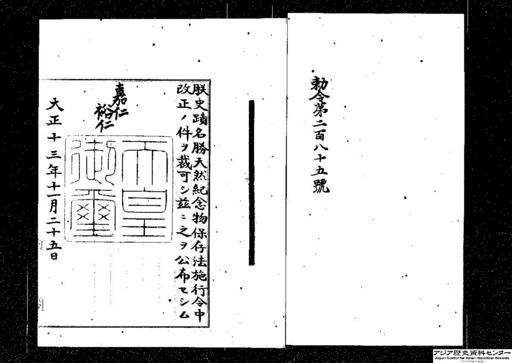 勅令第二百八十五號
朕史蹟名勝天然紀念物保存法施行令中
改正ノ件ヲ裁可シ茲ニ之ヲ公布セシム
嘉仁
裕仁
天皇
御璽
大正十三年十一月二十五日
アジア歴史資料センター
Japan Center for Asian Historical Records